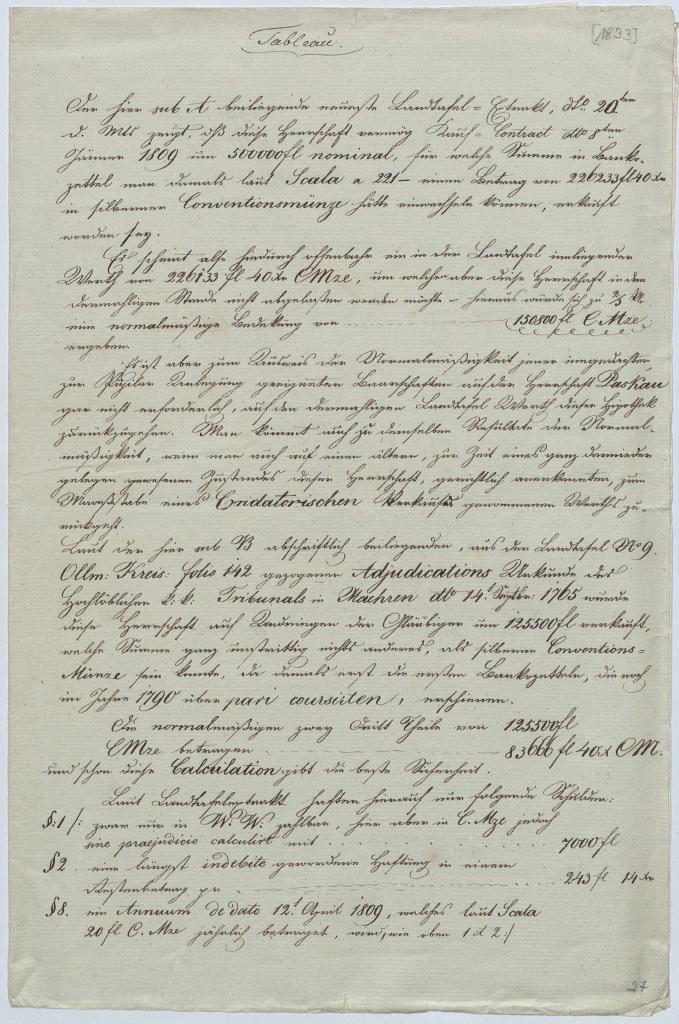 [1833]
Tableau.
Der hier sub A beiliegende neueste Landtafel= Extrakt, dto 20ten
d. Mts zeigt, daß diese Herrschaft vermög Kauf= Contract dto 8ten
Jänner 1809 um 500000 fl nominal, für welche Summe in Banko-
zettel man damals laut Scala a 221 – einen Betrag von 226233 fl 40 xr
in silberner Conventionsmünze hätte einwechseln können, erkauft
worden sey.
Es scheint also hiedurch offenbahr ein in der Landtafel innliegender
Werth von 226133 fl 40 xr CMze, um welchen aber diese Herrschaft in dem
dermahligen Stande nicht abgelassen werden möchte – hieraus würde sich zu 2/3
eine normalmäßige Bedekung von 150800 fl C Mze
ergeben.
Es ist aber zum Ausweis der Normalmäßigkeit jener
zur Pupilar Anlegung geeigneten Baarschaften auf der Herrschaft Paskau
gar nicht erforderlich, auf den dermahligen Landtafel Werth dieser Hipothek
zurückzugehen. Man kömmt auch zu demselben Resultate der Normal-
mäßigkeit, wenn man auch auf einen ältern, zur Zeit eines ganz darnieder
gelegen gewesenen Zustandes dieser Herrschaft, gerichtlich anerkannten, zum
Maaßstabe eines Cridatorischen Verkaufs genommenen Werths zu-
rückgeht.
Laut der hier sub B abschriftlich beiliegenden, aus der Landtafel No 9.
Ollm: Kreis: folio 142 gezogenen Adjudications Urkunde des
Hochlöblichen k: k: Tribunals in Maehren dto 14t Septbr: 1765 wurde
diese Herrschaft auf Andringen der Gläubiger um 125500 fl verkauft,
welche Summe ganz unstrittig nichts anderes, als silberne Conventions=
Münze sein konnte, da damals erst die ersten Bankozetteln, die noch
im Jahre 1790 über pari coursirten, erschienen.
Die normalmäßigen zwey Dritt Theile von 125500 fl
CMze betragen 83666 fl 40 x CM.
und schon diese Calculation gibt die beste Sicherheit.
Laut Landtafelextrakt haften hierauf nur folgende Schulden:
§: 1 /: zwar nur in W. W. zahlbar, hier aber in C. Mze jedoch
sine praejudicio calculirt mit 7000 fl
§ 2. eine längst indebite gewordene Haftung in einem
Restenbetrag pr 243 fl 14 xr
§ 8. ein Annuum de dato 12t April 1809, welches laut Scala
20 fl C. Mze jährlich betraget, wird, wie oben 1 et 2 :/
27